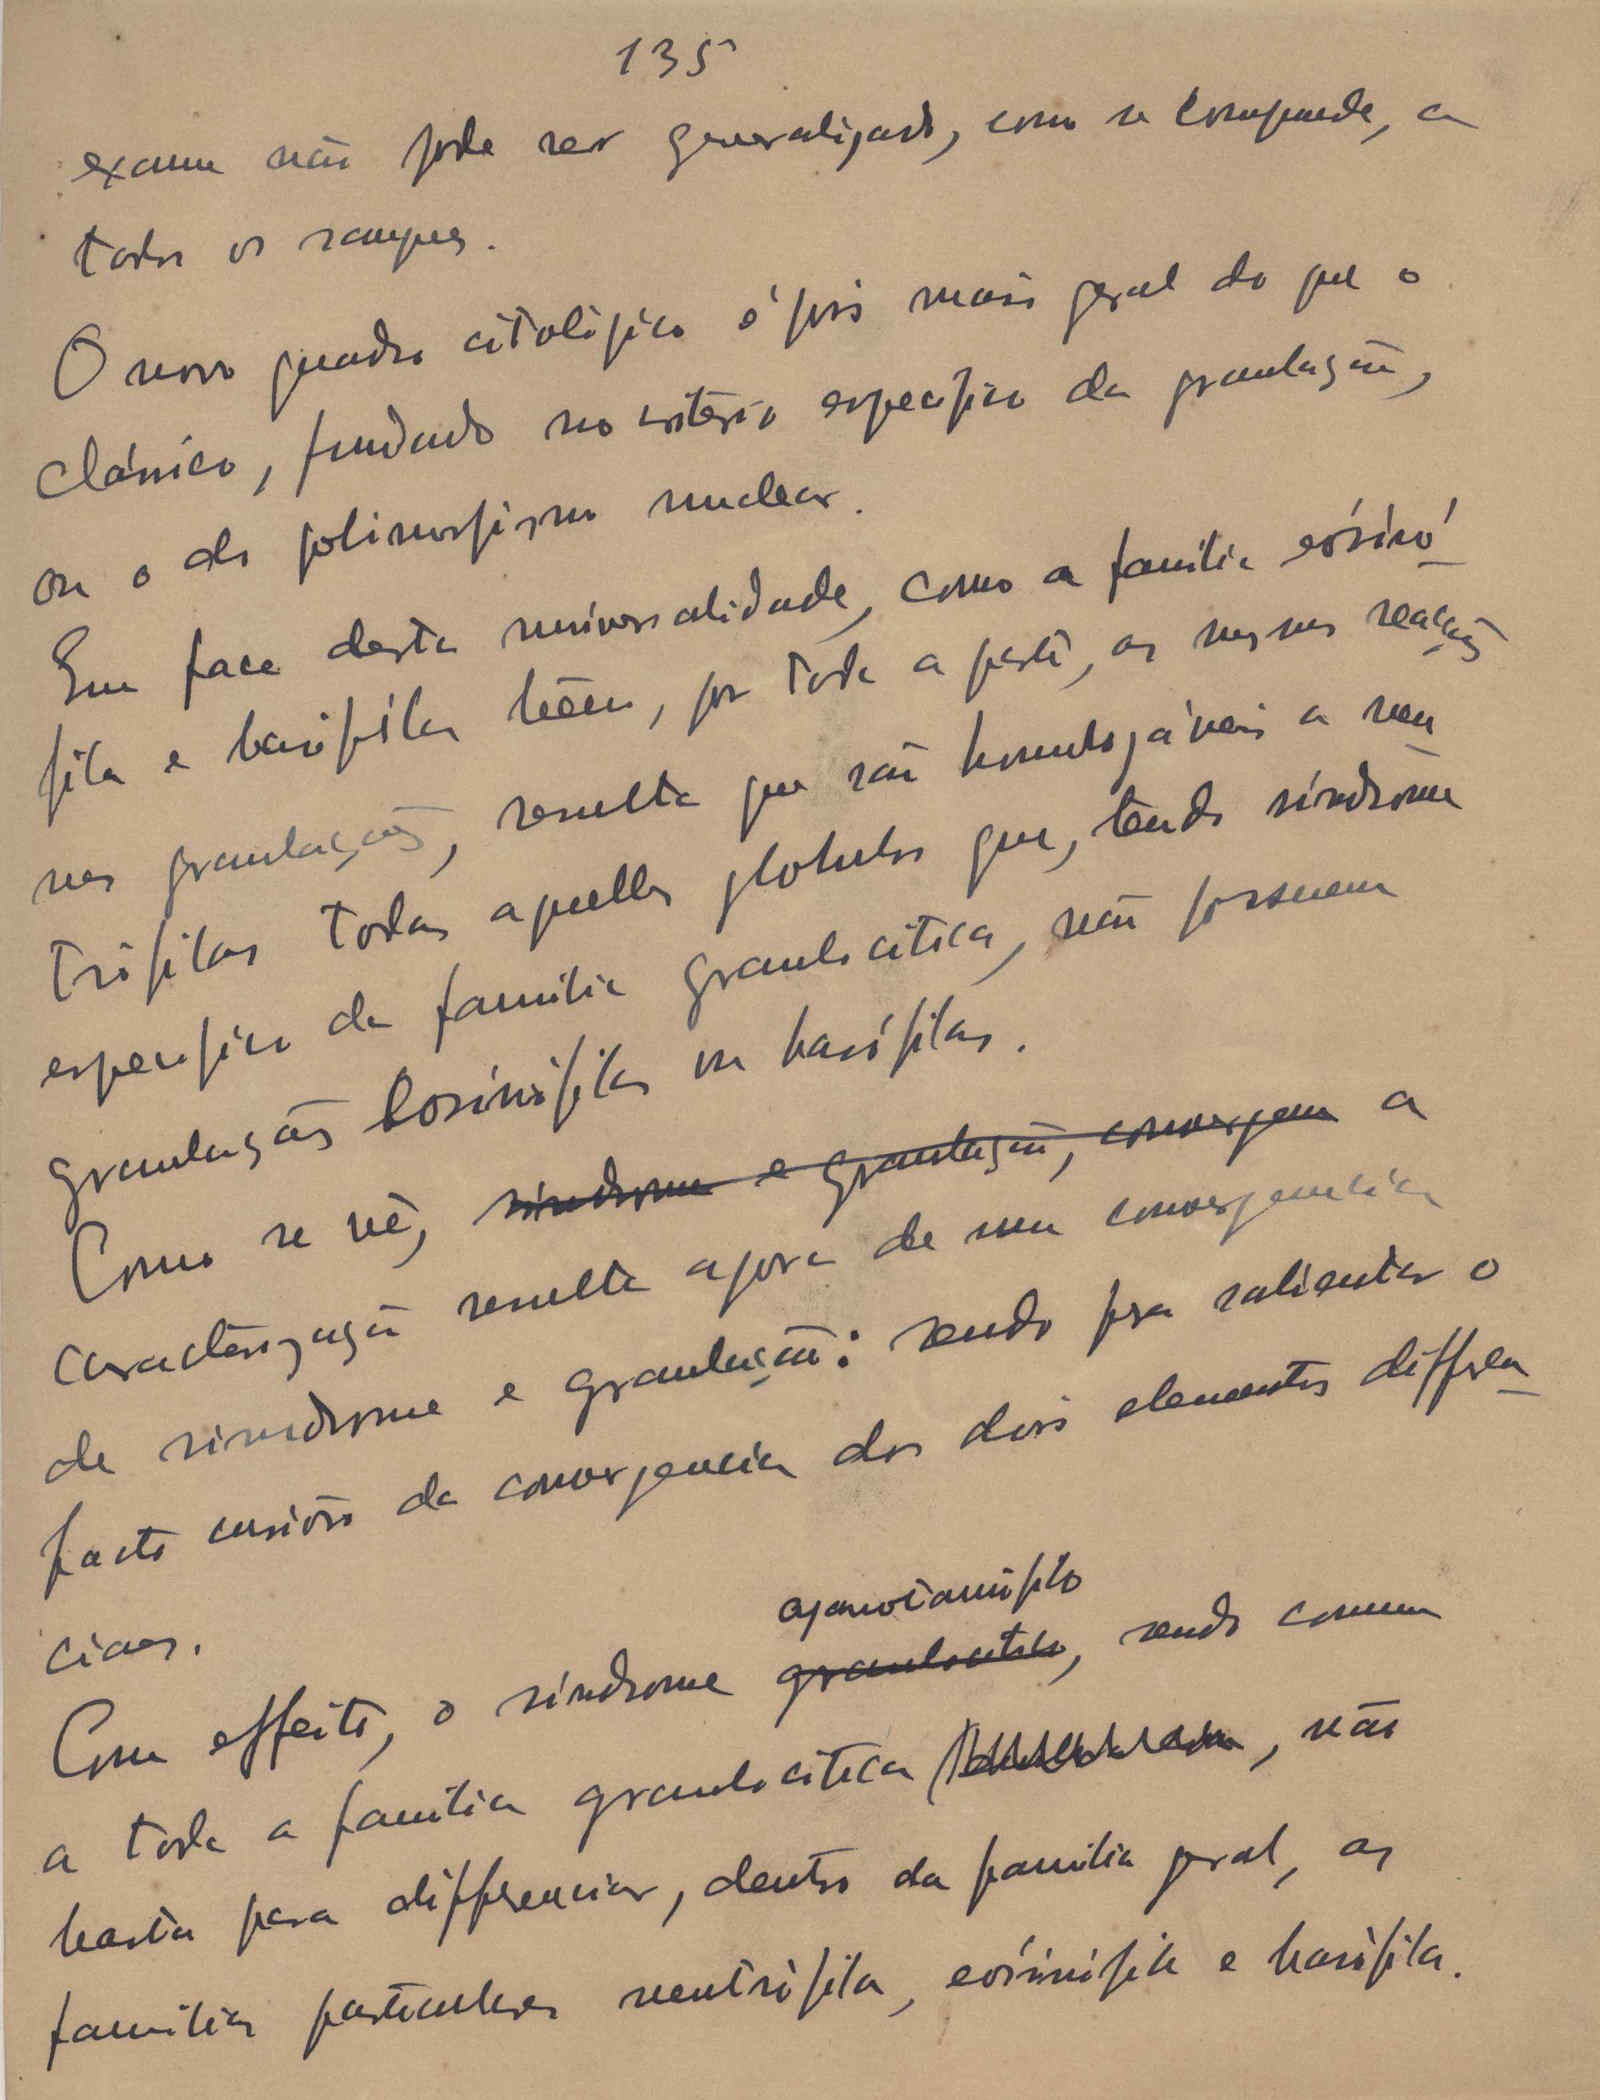 135
exame não pode ser generalizado, como se comprende, a
todos os sangues.
O novo quadro citológico é pois mais geral do que o
clássico, fundado no critério especifico da granulação,
ou o do polimorfismo nuclear.
Em face desta universalidade, como a familia eósinó-
fila e basófila teem, por toda a parte, as mesmas reacções
nas granulações, resulta que são homologáveis a neu
trófilas todas aquellas globulos que, tendo síndrome
especifico da familia granulocitica, não possuem
granulações eosinófilas ou basófilas.
Como se vê, síndrome e granulação, convergem a
caracterização resulta agora de uma convergencia
de sindrome e granulação: sendo pra salientar o
facto curioso da convergencia dos dois elementos differen-
ciaes.
azurotanófilo
Com effeito, o síndrome granulocitico, sendo comum
a toda a familia granulocitica, não
basta para differenciar, dentro da familia geral, as
familias particulares neutrófila, eósinófila e basófila.